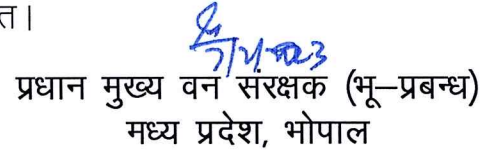 त।
प्रधान मुख्य वन संरक्षक (भू–प्रबन्ध)
मध्य प्रदेश, भोपाल